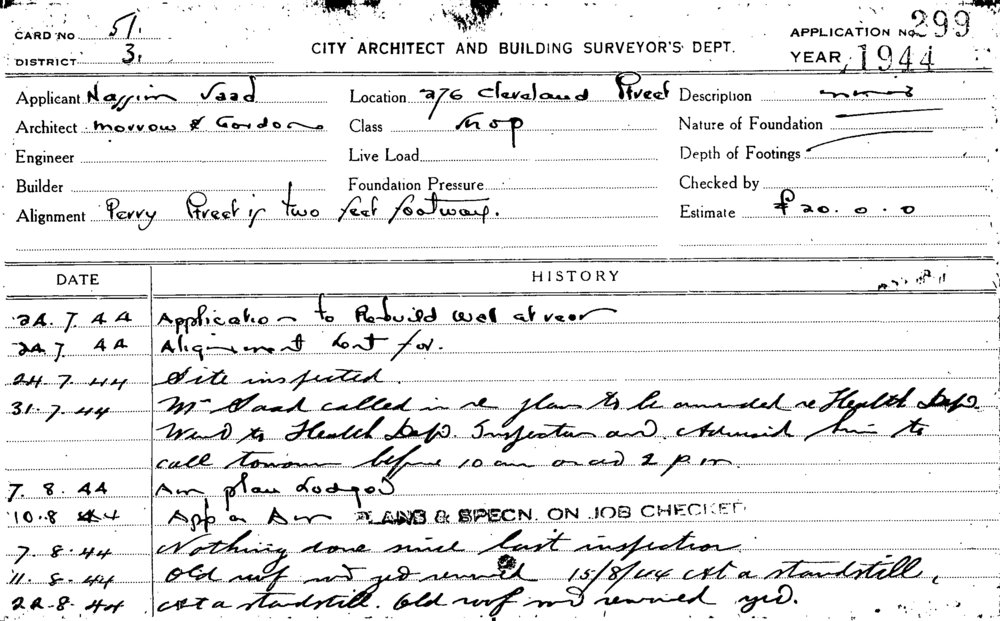 CARD NO 51.
DISTRICT 3.
CITY ARCHITECT AND BUILDING SURVEYOR'S DEPT.
APPLICATION No 299
YEAR 1944
Applicant Nassim Saad
Location 276 Cleveland Street
Description
Architect Morrow & Gordon
Class Shop
Nature of Foundation
Engineer
Live Load
Depth of Footings
Builder
Foundation Pressure
Checked by
Alignment Perry Street is two feet footway.
Estimate £20.0.0
DATE
HISTORY
24.7.44 Application to Rebuild at rear
24.7.44 Alignment for.
24.7.44 Site inspected.
31.7.44 Mr Saad called in re plans to be amended re Health Dept.
Went to Health Dept. Inspector and Advised him to
call before 10 am 2 p.m.
7.8.44 Am plan Lodged
10.8.44 App Am PLANS & SPECN. ON JOB CHECKED
7.8.44 Nothing done since last inspection.
11.8.44 Old roof not yet 15/8/44 At a standstill,
22.8.44 At a standstill. Old roof not yet.